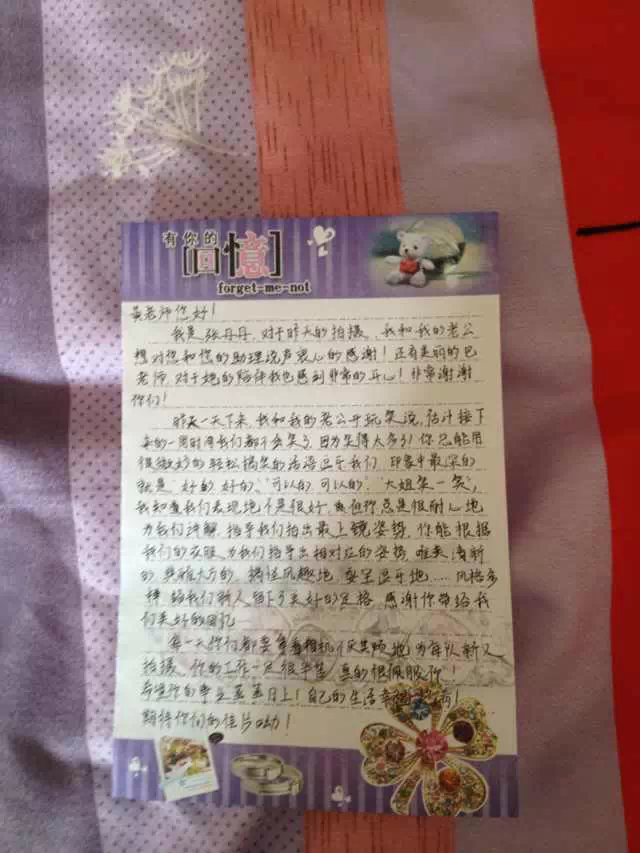 有你的
[回憶]
forget-me-not
黄老师您好！
我是张丹丹，对于昨天的拍摄，我和我的老公
想对您和您的助理说声衷心的感谢！还有美丽的巴
老师，对于她的陪伴我也感到非常的开心！非常谢谢
你们！
昨天一天下来，我和我的老公开玩笑说，估计接下
来的一周时间我们都不会笑了，因为笑得太多了！你总能用
很微妙的轻松搞笑的话语逗乐我们，印象中最深的
就是"好的，好的"，"可以的，可以的"，"大姐笑一笑"，
我知道我们表现地不是很好，但你总是很耐心地
为我们讲解，指导我们拍出最上镜姿势，你能根据
我们的衣服，为我们指导出相对应的姿势，唯美清新
的，典雅大方的，搞怪风趣地，耍宝逗乐地……风格多
样，给我们新人留下了美好的定格，感谢你带给我
们美好的回忆
每一天你们都要拿着相机不厌其烦地为每队新人
拍摄，你的工作一定很辛苦，真的很佩服你！
希望你的事业蒸蒸日上！自己的生活幸福
期待你们的佳片呦！